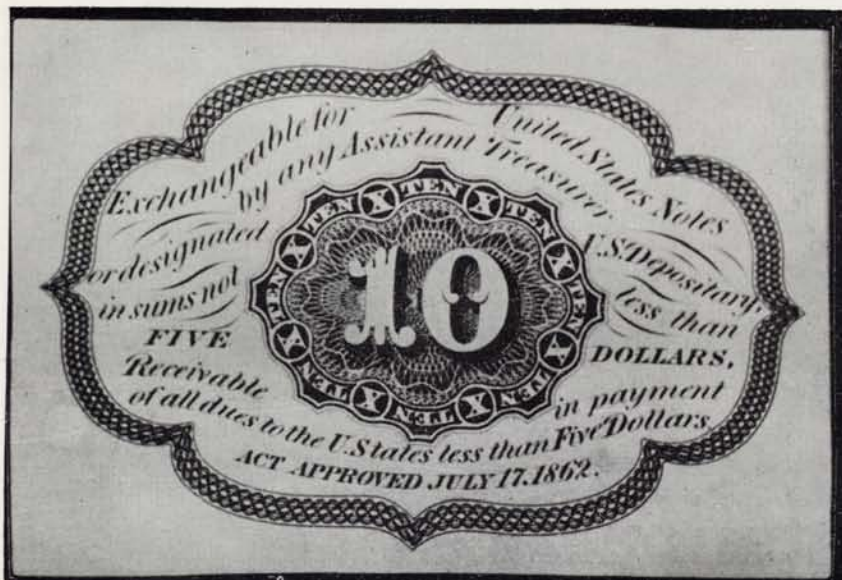 Exchangeable for United States Notes
by any Assistant Treasurer
or designated U.S. Depositary,
in sums not less than
FIVE DOLLARS,
Receivable in payment
of all dues to the U. States less than Five Dollars.
ACT APPROVED JULY 17.1862.
TEN X TEN X TEN X TEN X TEN X TEN X TEN X TEN X
10